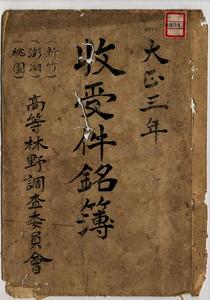 大正三年
收受件銘簿
(新竹)
(澎湖)
(桃園)
高等林野調査委員會